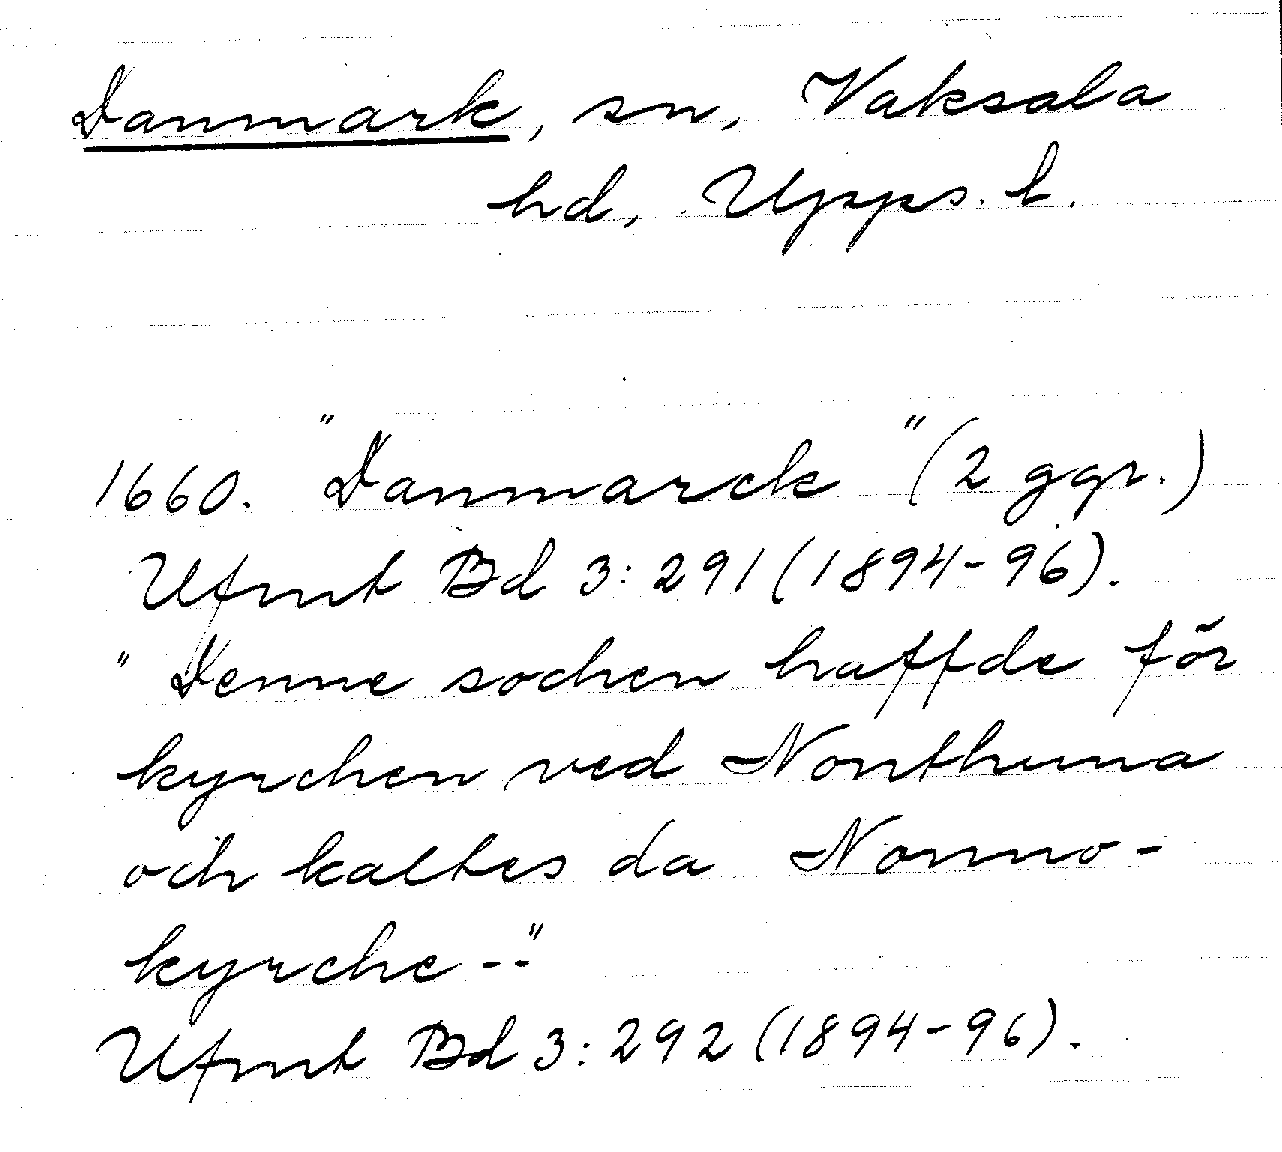 Danmark, sn, Vaksala
hd, Upps. l.
1660. "Danmarck" (2 ggr.)
Ufmt Bd 3: 291 (1894-96).
"Denne sochen haffde för
kyrchen ved Nonthuna
och kaltes da Nonno-
kyrche --"
Ufmt Bd 3: 292 (1894-96).